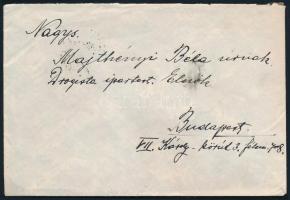 Nagys.
Majthényi Béla úrnak
Drogista ipartest. Elnök
Budapest.
VII. Károly-körút 3.